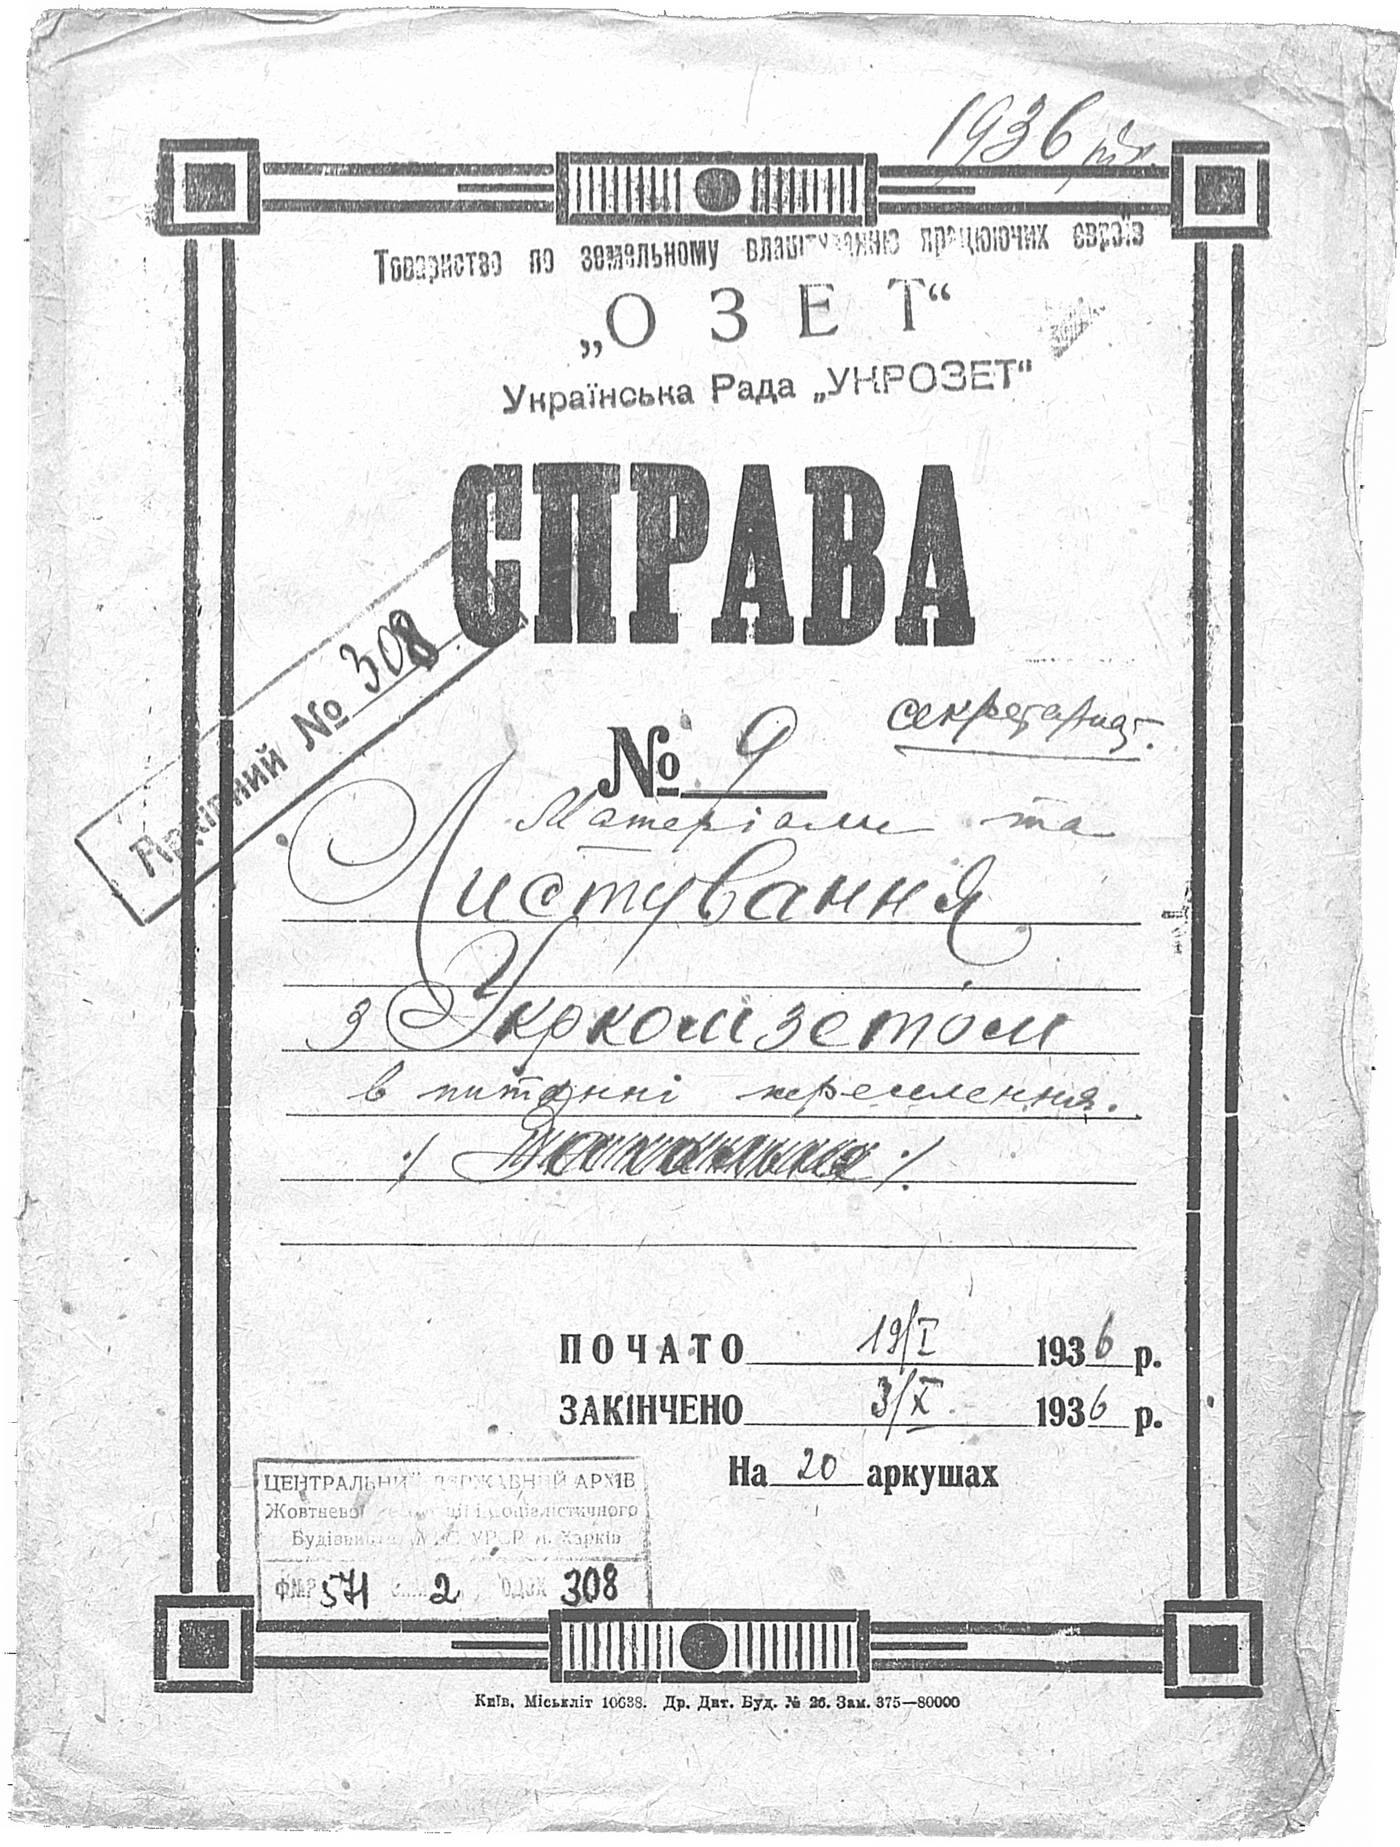 1936 рік.
Товариство по земельному влаштуванню працюючих євреїв
„ОЗЕТ“
Українська Рада „УКРОЗЕТ“
СПРАВА
Архівний № 308
секретариат.
№ 9
Матеріали та
Листування
з Укркомзетом
в питанні переселення.
ПОЧАТО 19/I 1936 р.
ЗАКІНЧЕНО 3/X 1936 р.
На 20 аркушах
ЦЕНТРАЛЬНИЙ ДЕРЖАВНИЙ АРХІВ
Жовтневої Революції і Соціалістичного
Будівництва УРСР м. Харків
ФМР 571 2 308
Київ. Міськліт 10638. Др. Дит. Буд. № 26. Зам. 375—80000